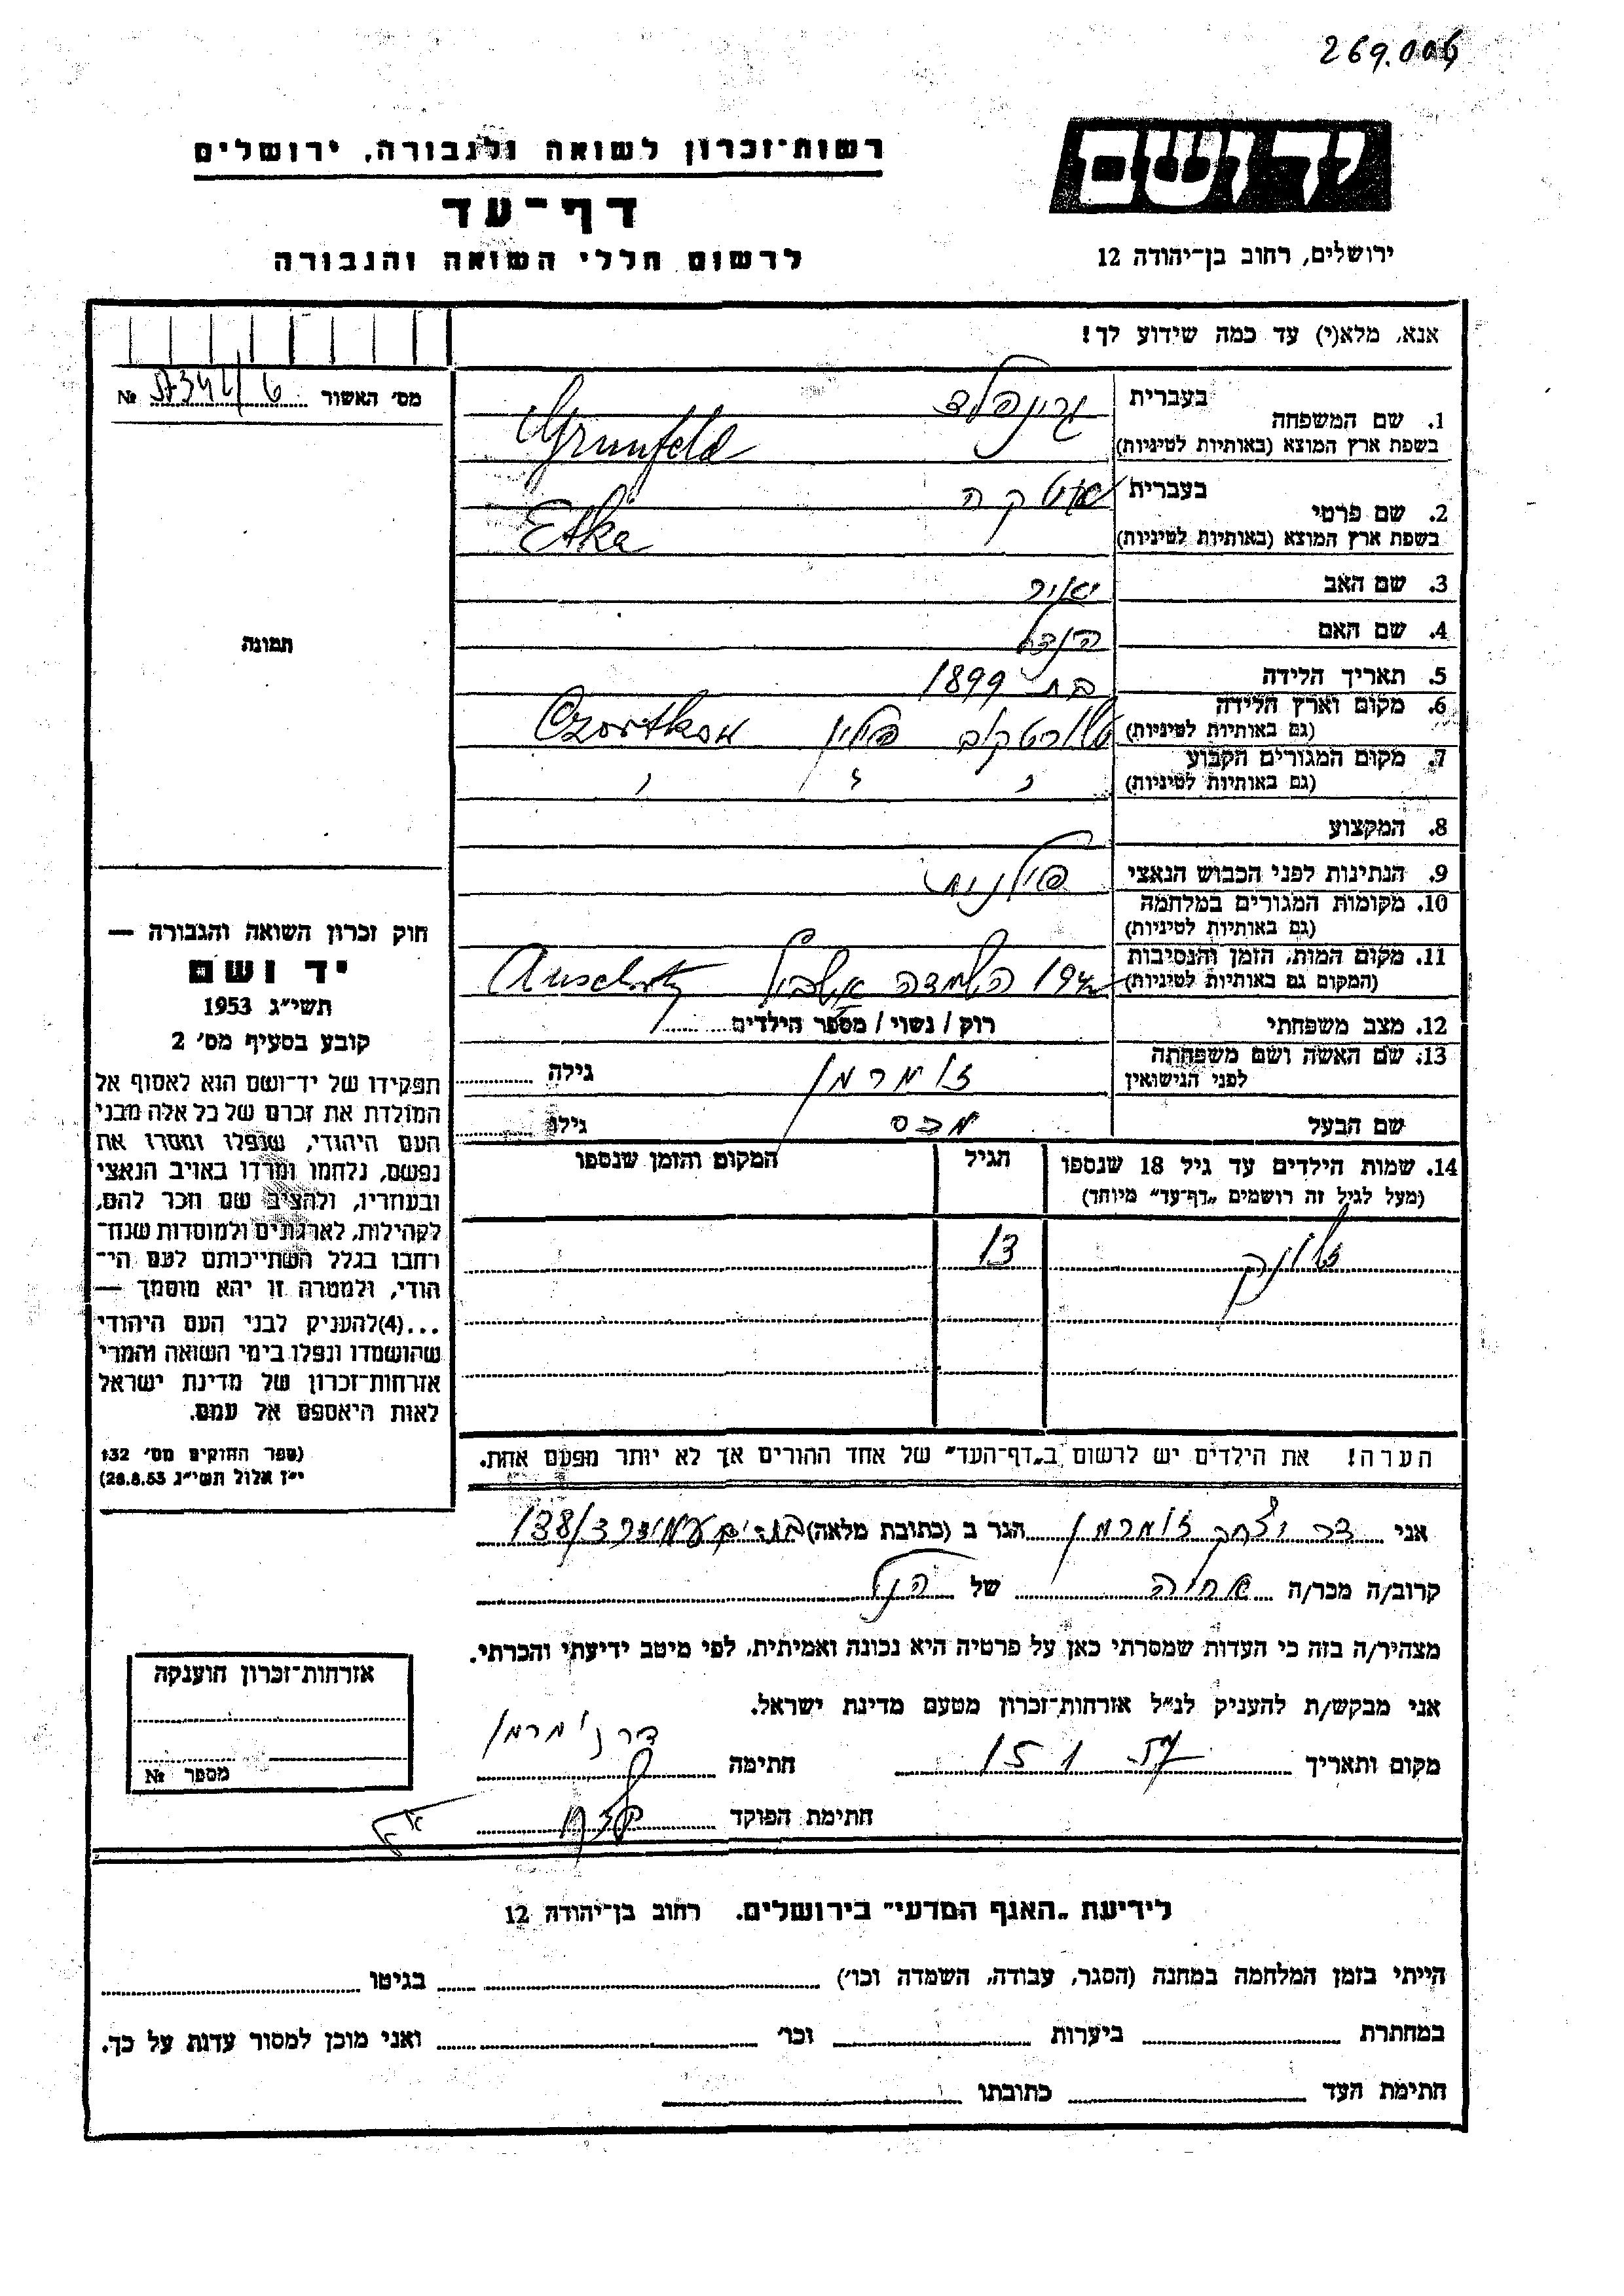 269.006
רשות-זכרון לשואה ולגבורה, ירושלים
יד ושם
דף-עד
לרשום חללי השואה והגבורה
ירושלים, רחוב בן-יהודה 12
אנא, מלא(י) עד כמה שידוע לך!
מס' האשור №
1. שם המשפחה
בעברית גרינפלד
בשפת ארץ המוצא (באותיות לטיניות) Grunfeld
2. שם פרטי
בעברית אטקה
בשפת ארץ המוצא (באותיות לטיניות) Etka
3. שם האב יאיר
4. שם האם הינדל
5. תאריך הלידה בת 1899
6. מקום וארץ הלידה
(גם באותיות לטיניות) טשורטקוב פולין Czortkow
7. מקום המגורים הקבוע
(גם באותיות לטיניות) " " "
8. המקצוע
9. הנתינות לפני הכבוש הנאצי פולנית
10. מקומות המגורים במלחמה
(גם באותיות לטיניות)
11. מקום המות, הזמן והנסיבות
(המקום גם באותיות לטיניות) השמדה
12. מצב משפחתי רוק / נשוי / מספר הילדים
13. שם האשה ושם משפחתה
לפני הנישואין זומרמן גילה
שם הבעל מכס גילו
14. שמות הילדים עד גיל 18 שנספו
(מעל לגיל זה רושמים „דף-עד" מיוחד)
הגיל
המקום והזמן שנספו
13
הערה! את הילדים יש לרשום ב„דף-העד" של אחד ההורים אך לא יותר מפעם אחת.
תמונה
חוק זכרון השואה והגבורה —
יד ושם
תשי"ג 1953
קובע בסעיף מס' 2
תפקידו של יד-ושם הוא לאסוף אל
המולדת את זכרם של כל אלה מבני
העם היהודי, שנפלו ומסרו את
נפשם, נלחמו ומרדו באויב הנאצי
ובעוזריו, ולהציב שם וזכר להם,
לקהילות, לארגונים ולמוסדות שנח-
רחבו בגלל השתייכותם לעם הי-
הודי, ולמטרה זו יהא מוסמך —
...(4)להעניק לבני העם היהודי
שהושמדו ונפלו בימי השואה והמרי
אזרחות-זכרון של מדינת ישראל
לאות היאספם אל עמם.
(ספר החוקים מס' 132
י"ז אלול תשי"ג 28.8.53)
אני דר יצחק זומרמן הגר ב (כתובת מלאה) בת-ים 138/3
קרוב/ה מכר/ה אחיה של הנ"ל
מצהיר/ה בזה כי העדות שמסרתי כאן על פרטיה היא נכונה ואמיתית, לפי מיטב ידיעתי והכרתי.
אני מבקש/ת להעניק לנ"ל אזרחות-זכרון מטעם מדינת ישראל.
מקום ותאריך חתימה דר זומרמן
חתימת הפוקד
אזרחות-זכרון הוענקה
מספר №
לידיעת „האגף המדעי" בירושלים. רחוב בן-יהודה 12
הייתי בזמן המלחמה במחנה (הסגר, עבודה, השמדה וכו') בגיטו
במחתרת ביערות וכו' ואני מוכן למסור עדות על כך.
חתימת העד כתובתו